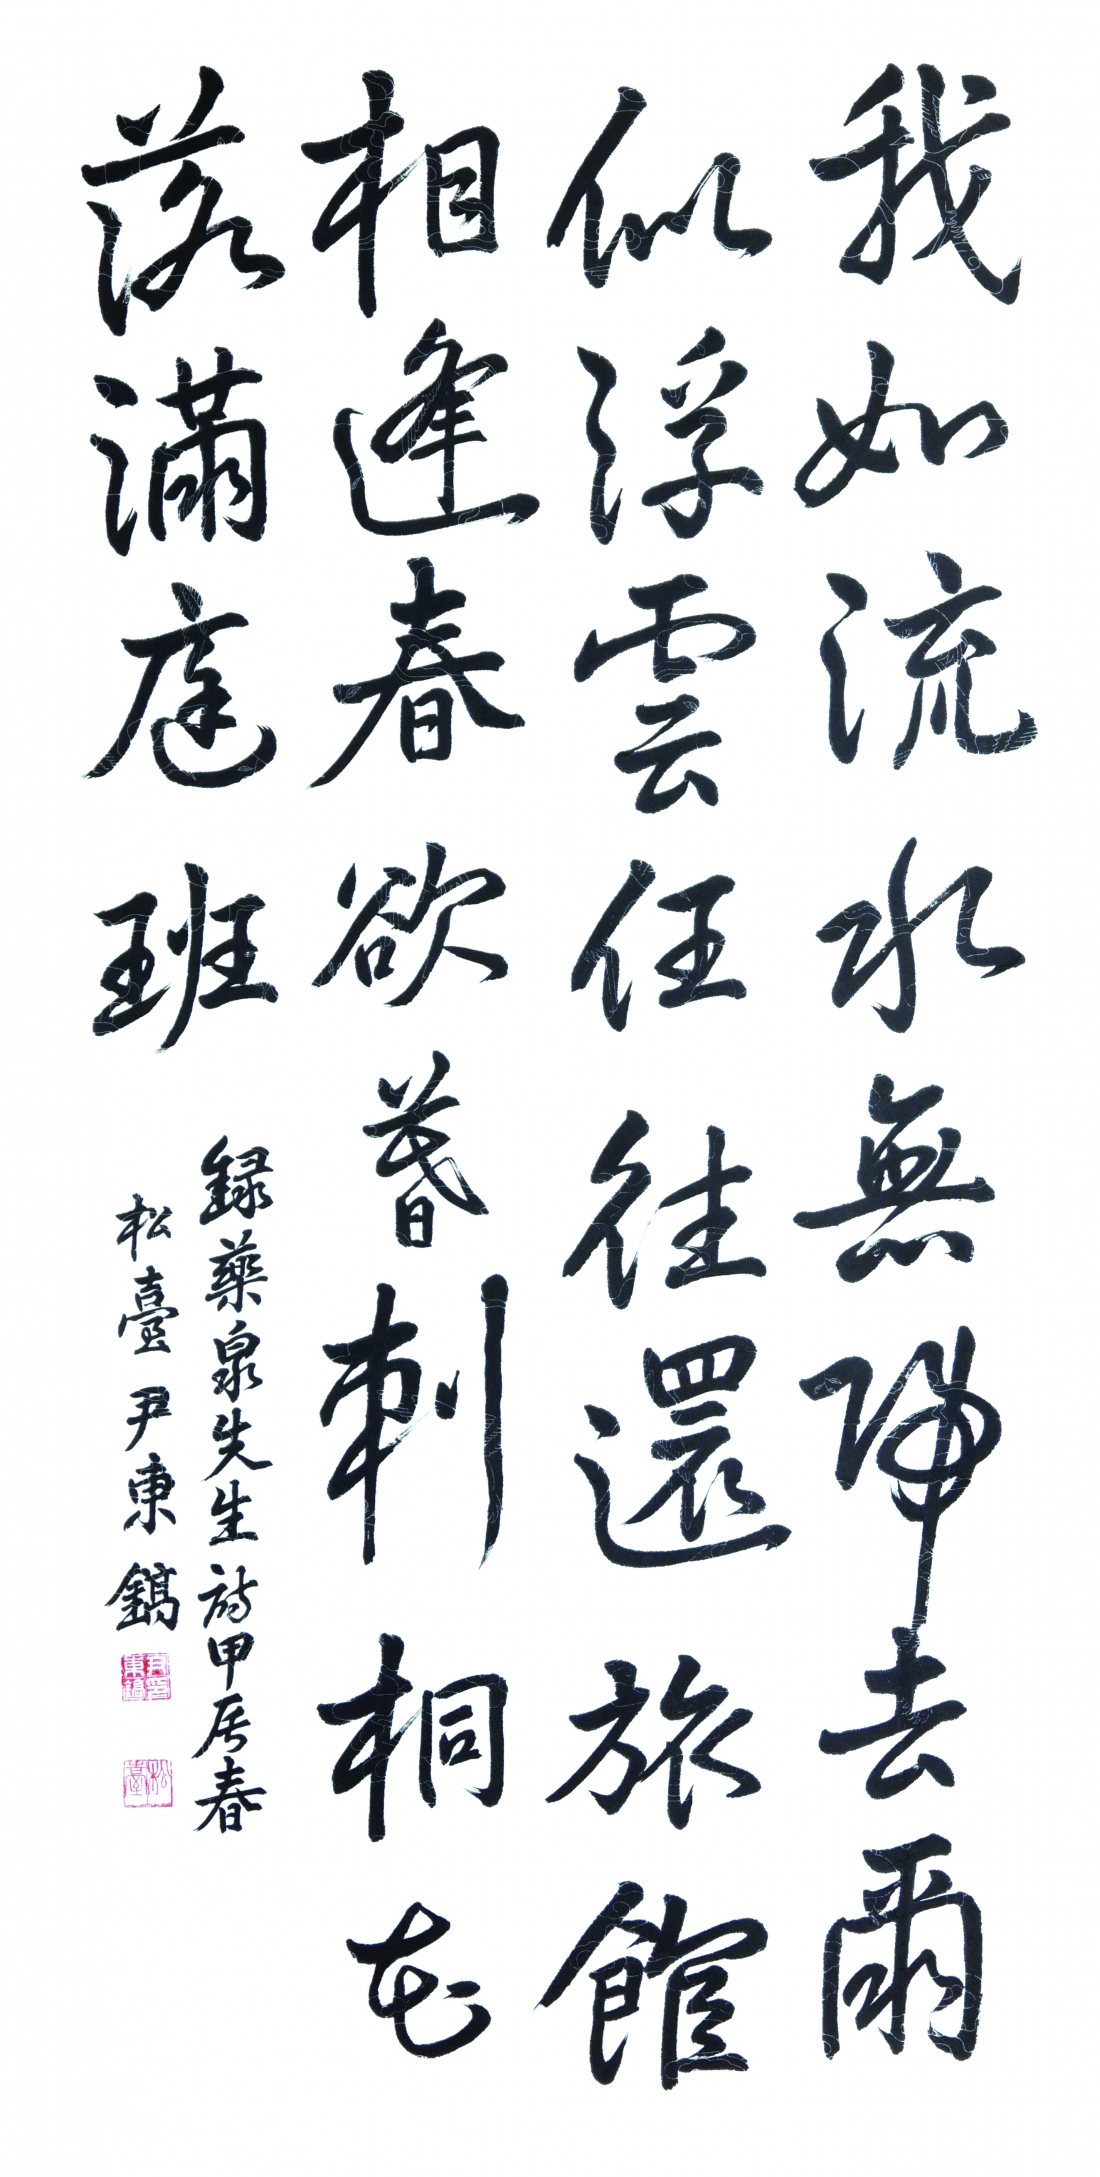 我如流水無歸去爾
似浮雲任往還旅館
相逢春欲暮刺桐花
落滿庭班
錄藥泉先生詩甲辰春
松臺 尹東鎬
尹東鎬印
松臺